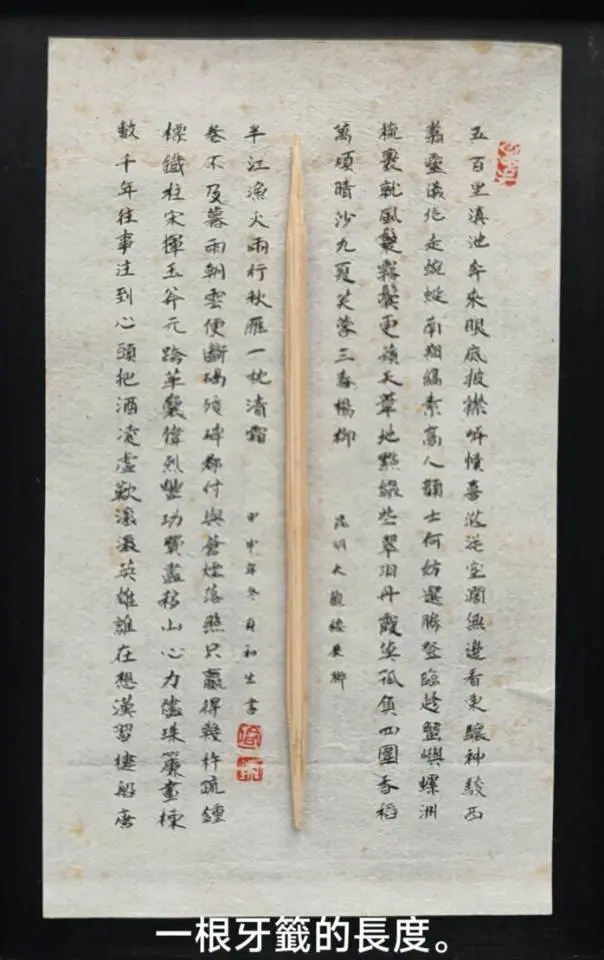 五百里滇池奔來眼底披襟岸幘喜茫茫空闊無邊看東驤神駿西
翥靈儀北走蜿蜒南翔縞素高人韻士何妨選勝登臨趁蟹嶼螺洲
梳裹就風鬟霧鬢更蘋天葦地點綴些翠羽丹霞莫孤負四圍香稻
萬頃晴沙九夏芙蓉三春楊柳
昆明大觀樓長聯
數千年往事注到心頭把酒凌虛歎滾滾英雄誰在想漢習樓船唐
標鐵柱宋揮玉斧元跨革囊偉烈豐功費盡移山心力儘珠簾畫棟
卷不及暮雨朝雲便斷碣殘碑都付與蒼煙落照只贏得幾杵疏鐘
半江漁火兩行秋雁一枕清霜
甲申年冬和生書
一根牙籤的長度。